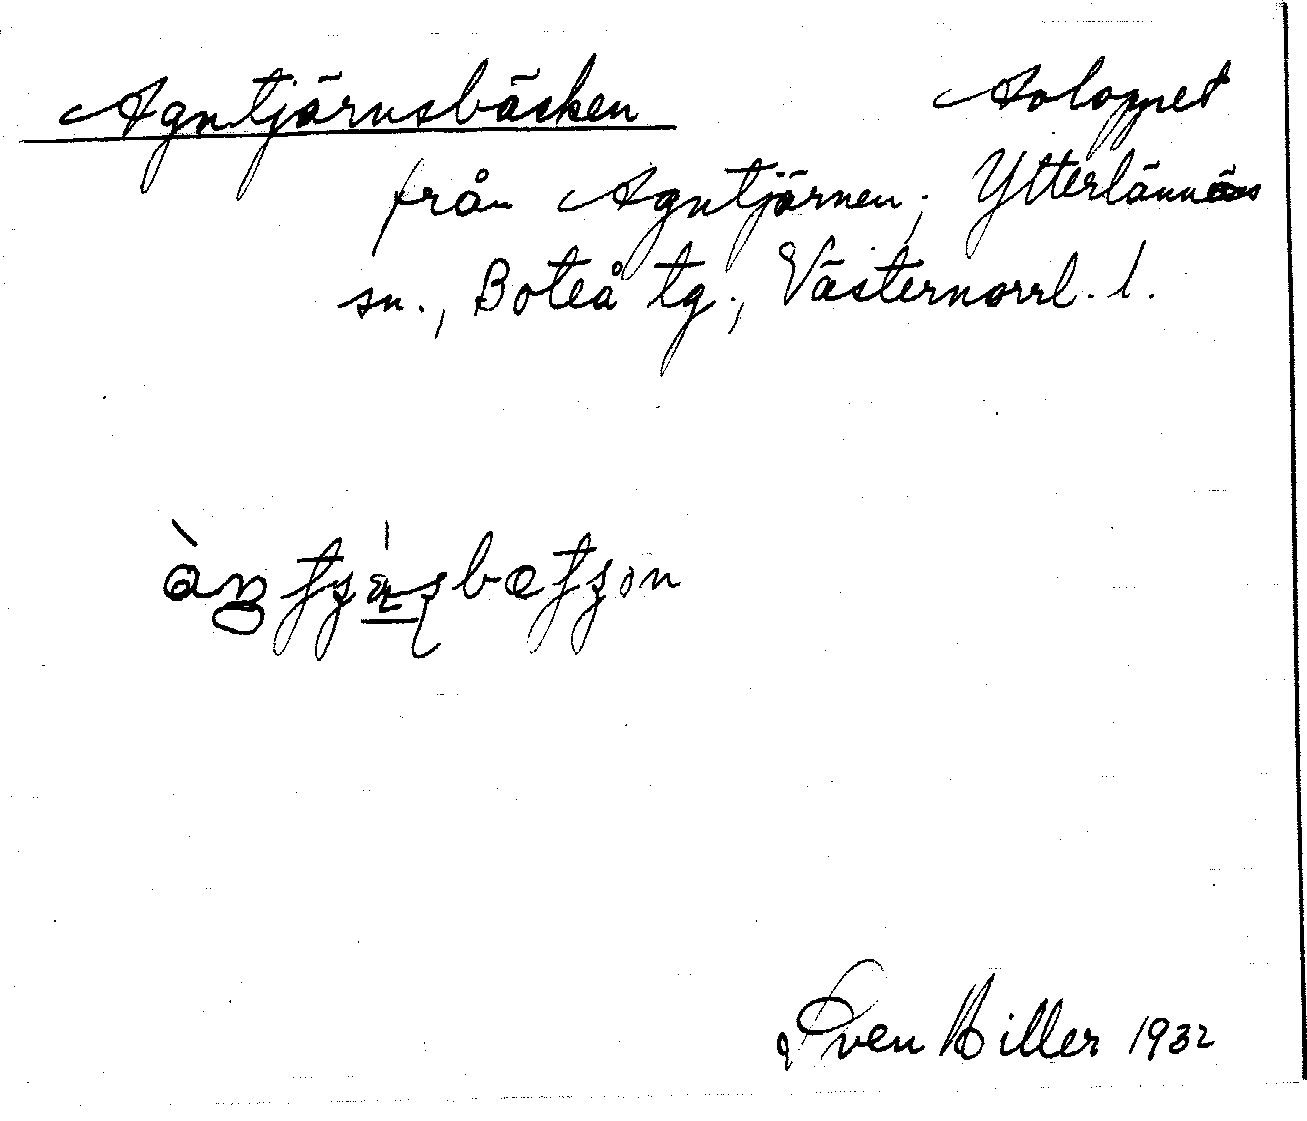 Agntjärnsbäcken Avloppet
från Agntjärnen, Ytterlännäs
sn., Boteå tg., Västernorrl. l.
Sven Hiller 1932